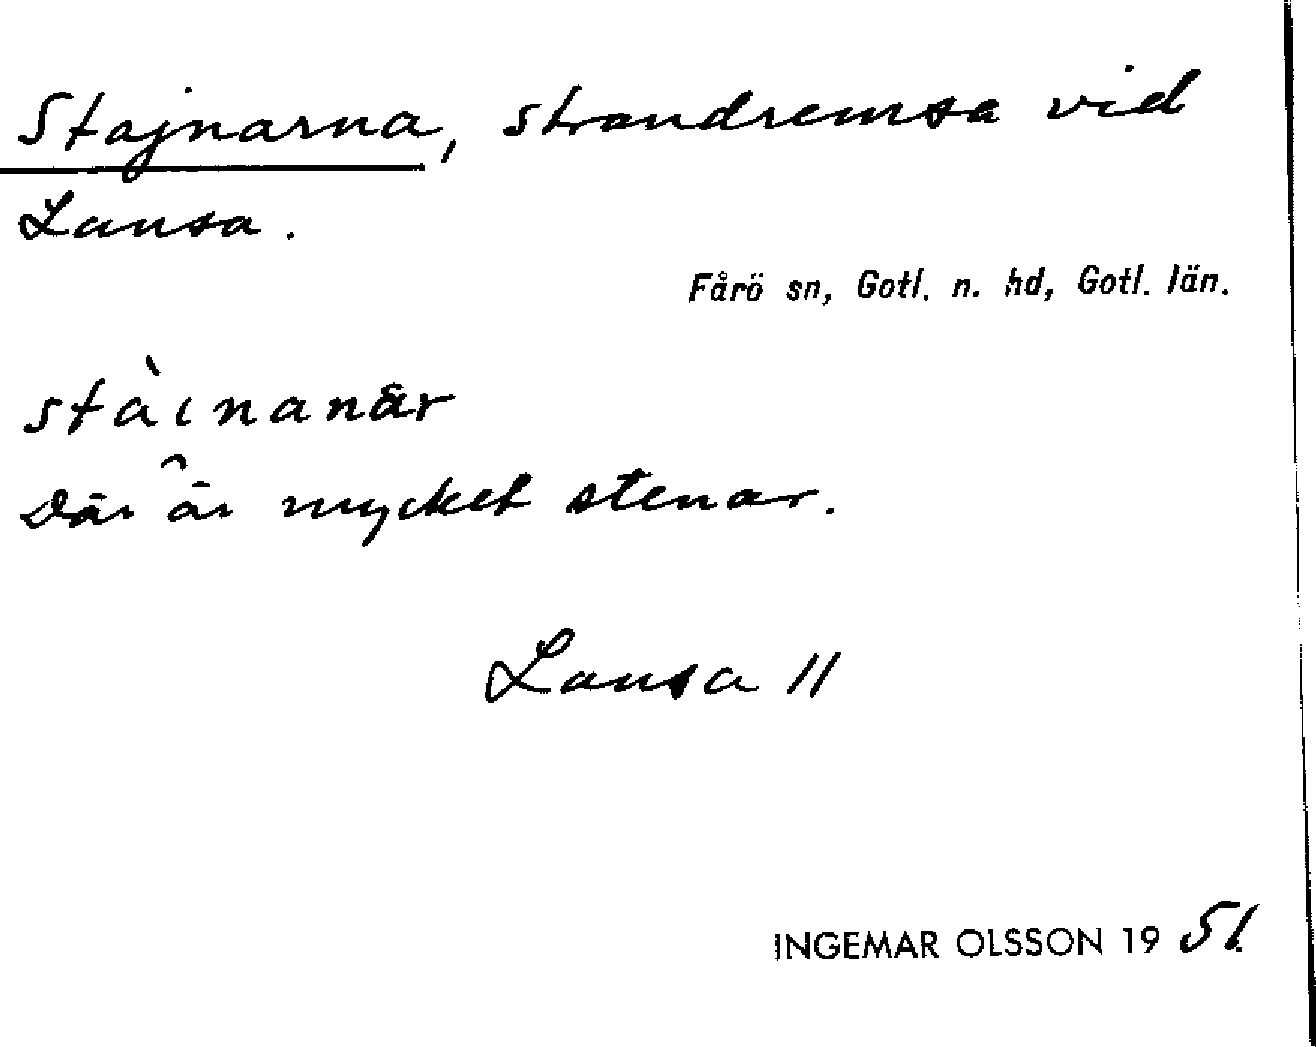 Stajnarna, strandremsa vid
Lansa.
Fårö sn, Gotl. n. hd, Gotl. län.
stàinanar
Där är mycket stenar.
Lansa 11
INGEMAR OLSSON 19 51.